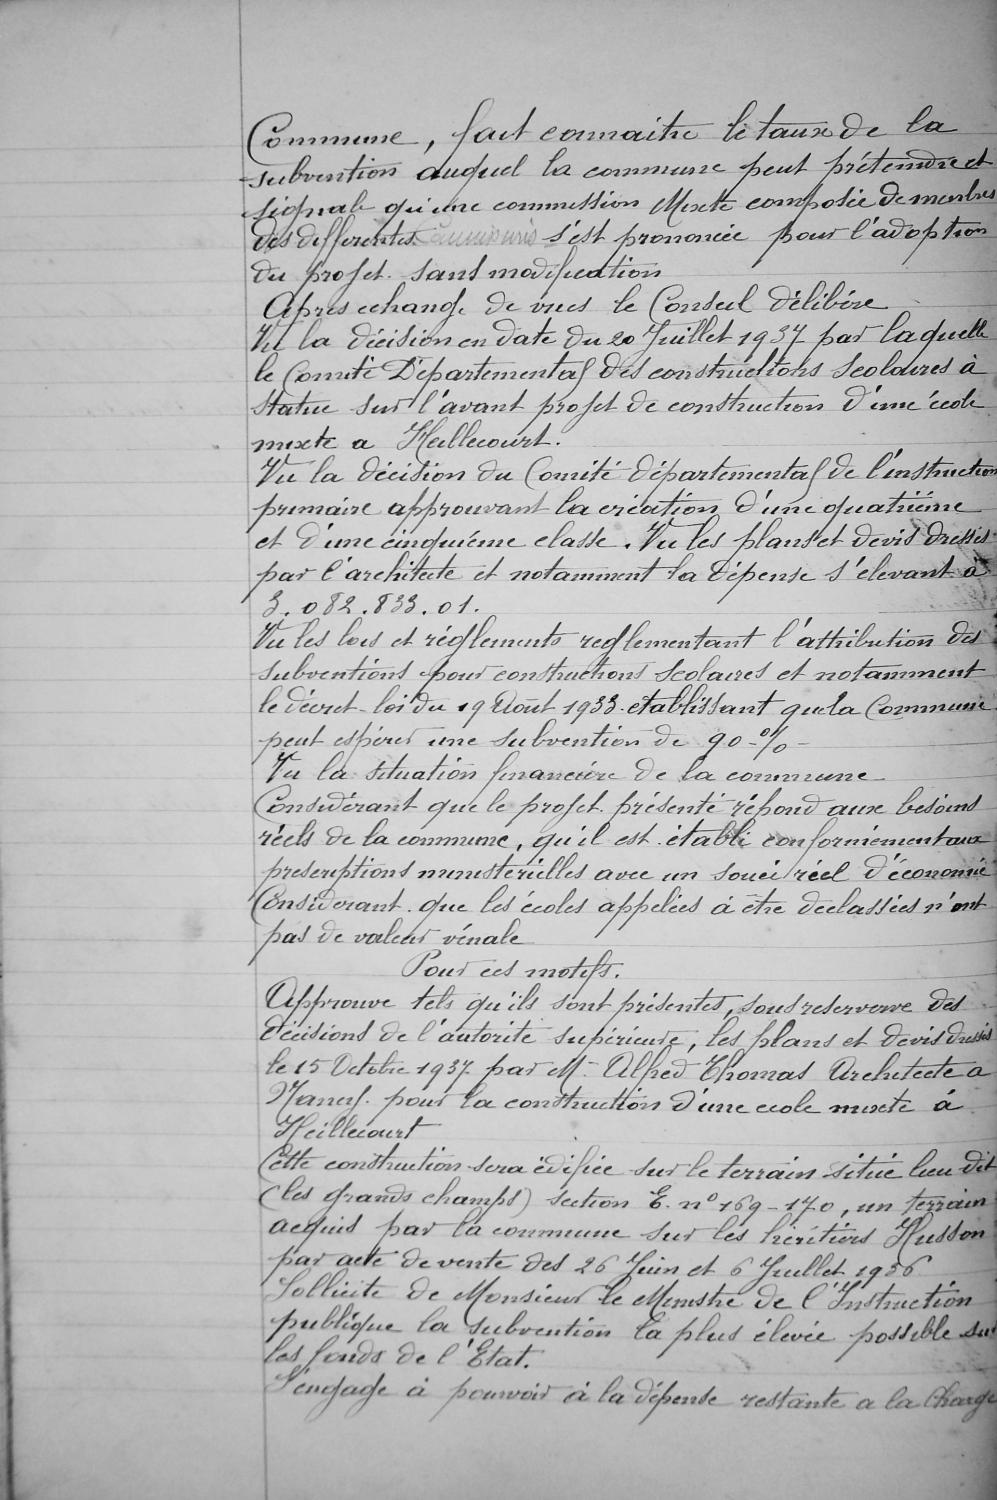 Commune, fait connaitre le taux de la
subvention auquel la commune peut prétendre et
signale qu'une commission Mixte composée de membres
des differentes s'est prononcée pour l'adoption
du projet sans modification
Après echange de vues le Conseil délibére
Vu la décision en date du 20 Juillet 1937 par laquelle
le Comité Départemental des constructions scolaires à
statue sur l'avant projet de construction d'une école
mixte a Heillecourt.
Vu la décision du Comité départemental de l'instruction
primaire approuvant la création d'une quatrième
et d'une cinquième classe. Vu les plans et devis dressés
par l'architecte et notamment la dépense s'élevant à
3.082.833.01.
Vu les lois et réglements reglementant l'attribution des
subventions pour constructions scolaires et notamment
le décret-loi du 19 Août 1933 etablissant que la Commune
peut espérer une subvention de 90-%-
Vu la situation financière de la commune
Considérant que le projet présenté répond aux besoins
réels de la commune, qu'il est établi conformément aux
prescriptions ministérielles avec un souci réel d'économie
Considerant que les écoles appelées à être declassées n'ont
pas de valeur vénale
Pour ces motifs.
Approuve tels qu'ils sont présentes, sous reserverve des
décisions de l'autorité supérieure, les plans et devis dressés
le 15 Octobre 1937 par M. Alfred Thomas Architecte a
Nancy. pour la construction d'une ecole mixte à
Heillecourt
Cette construction sera édifiée sur le terrain situé lieu dit
(les grands champs) section E. n° 169-170, un terrain
acquis par la commune sur les héritiers Husson
par acte de vente des 26 Juin et 6 Juillet 1936
Sollicite de Monsieur le Ministre de l'Instruction
publique la subvention la plus élevée possible sur
les fonds de l'Etat.
S'engage à pouvoir à la dépense restante a la charge